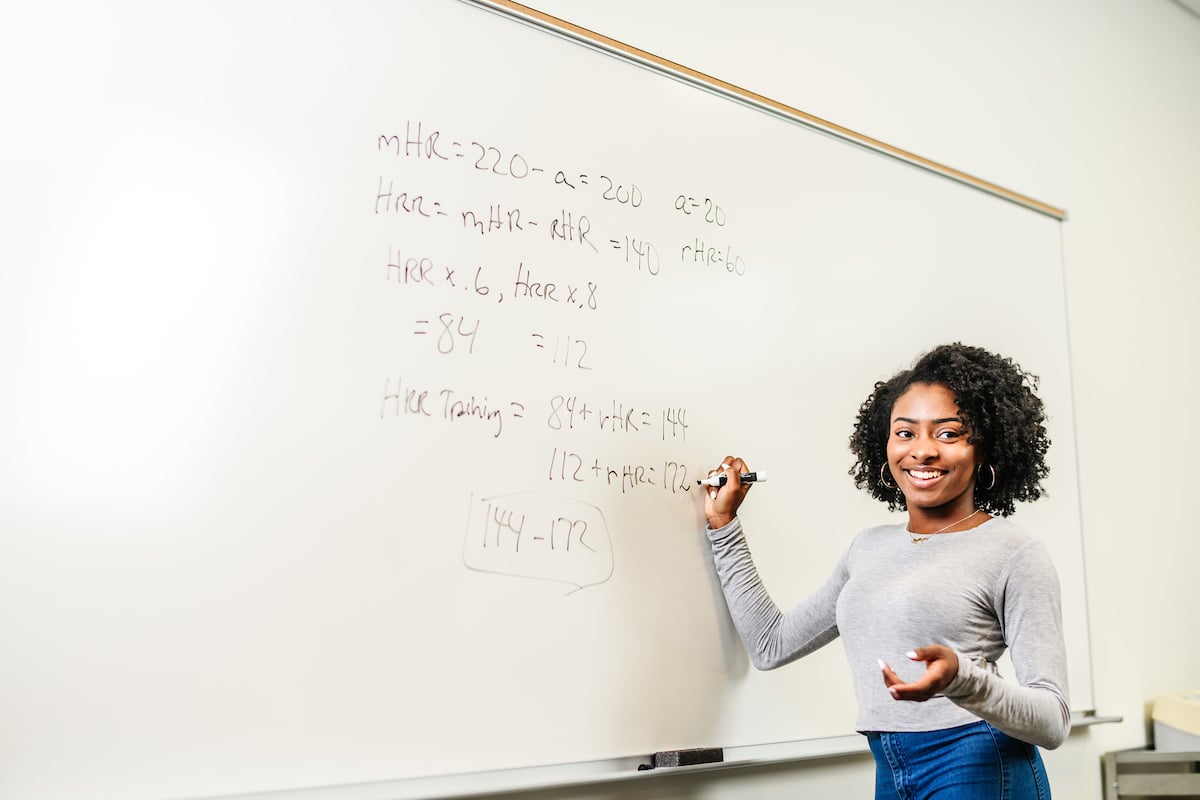 mHR = 220 - a = 200 a = 20
HRR = mHR - rHR = 140 rHR = 60
HRR x .6, HRR x .8
= 84 = 112
HRR Training = 84 + rHR = 144
112 + rHR = 172
144 - 172